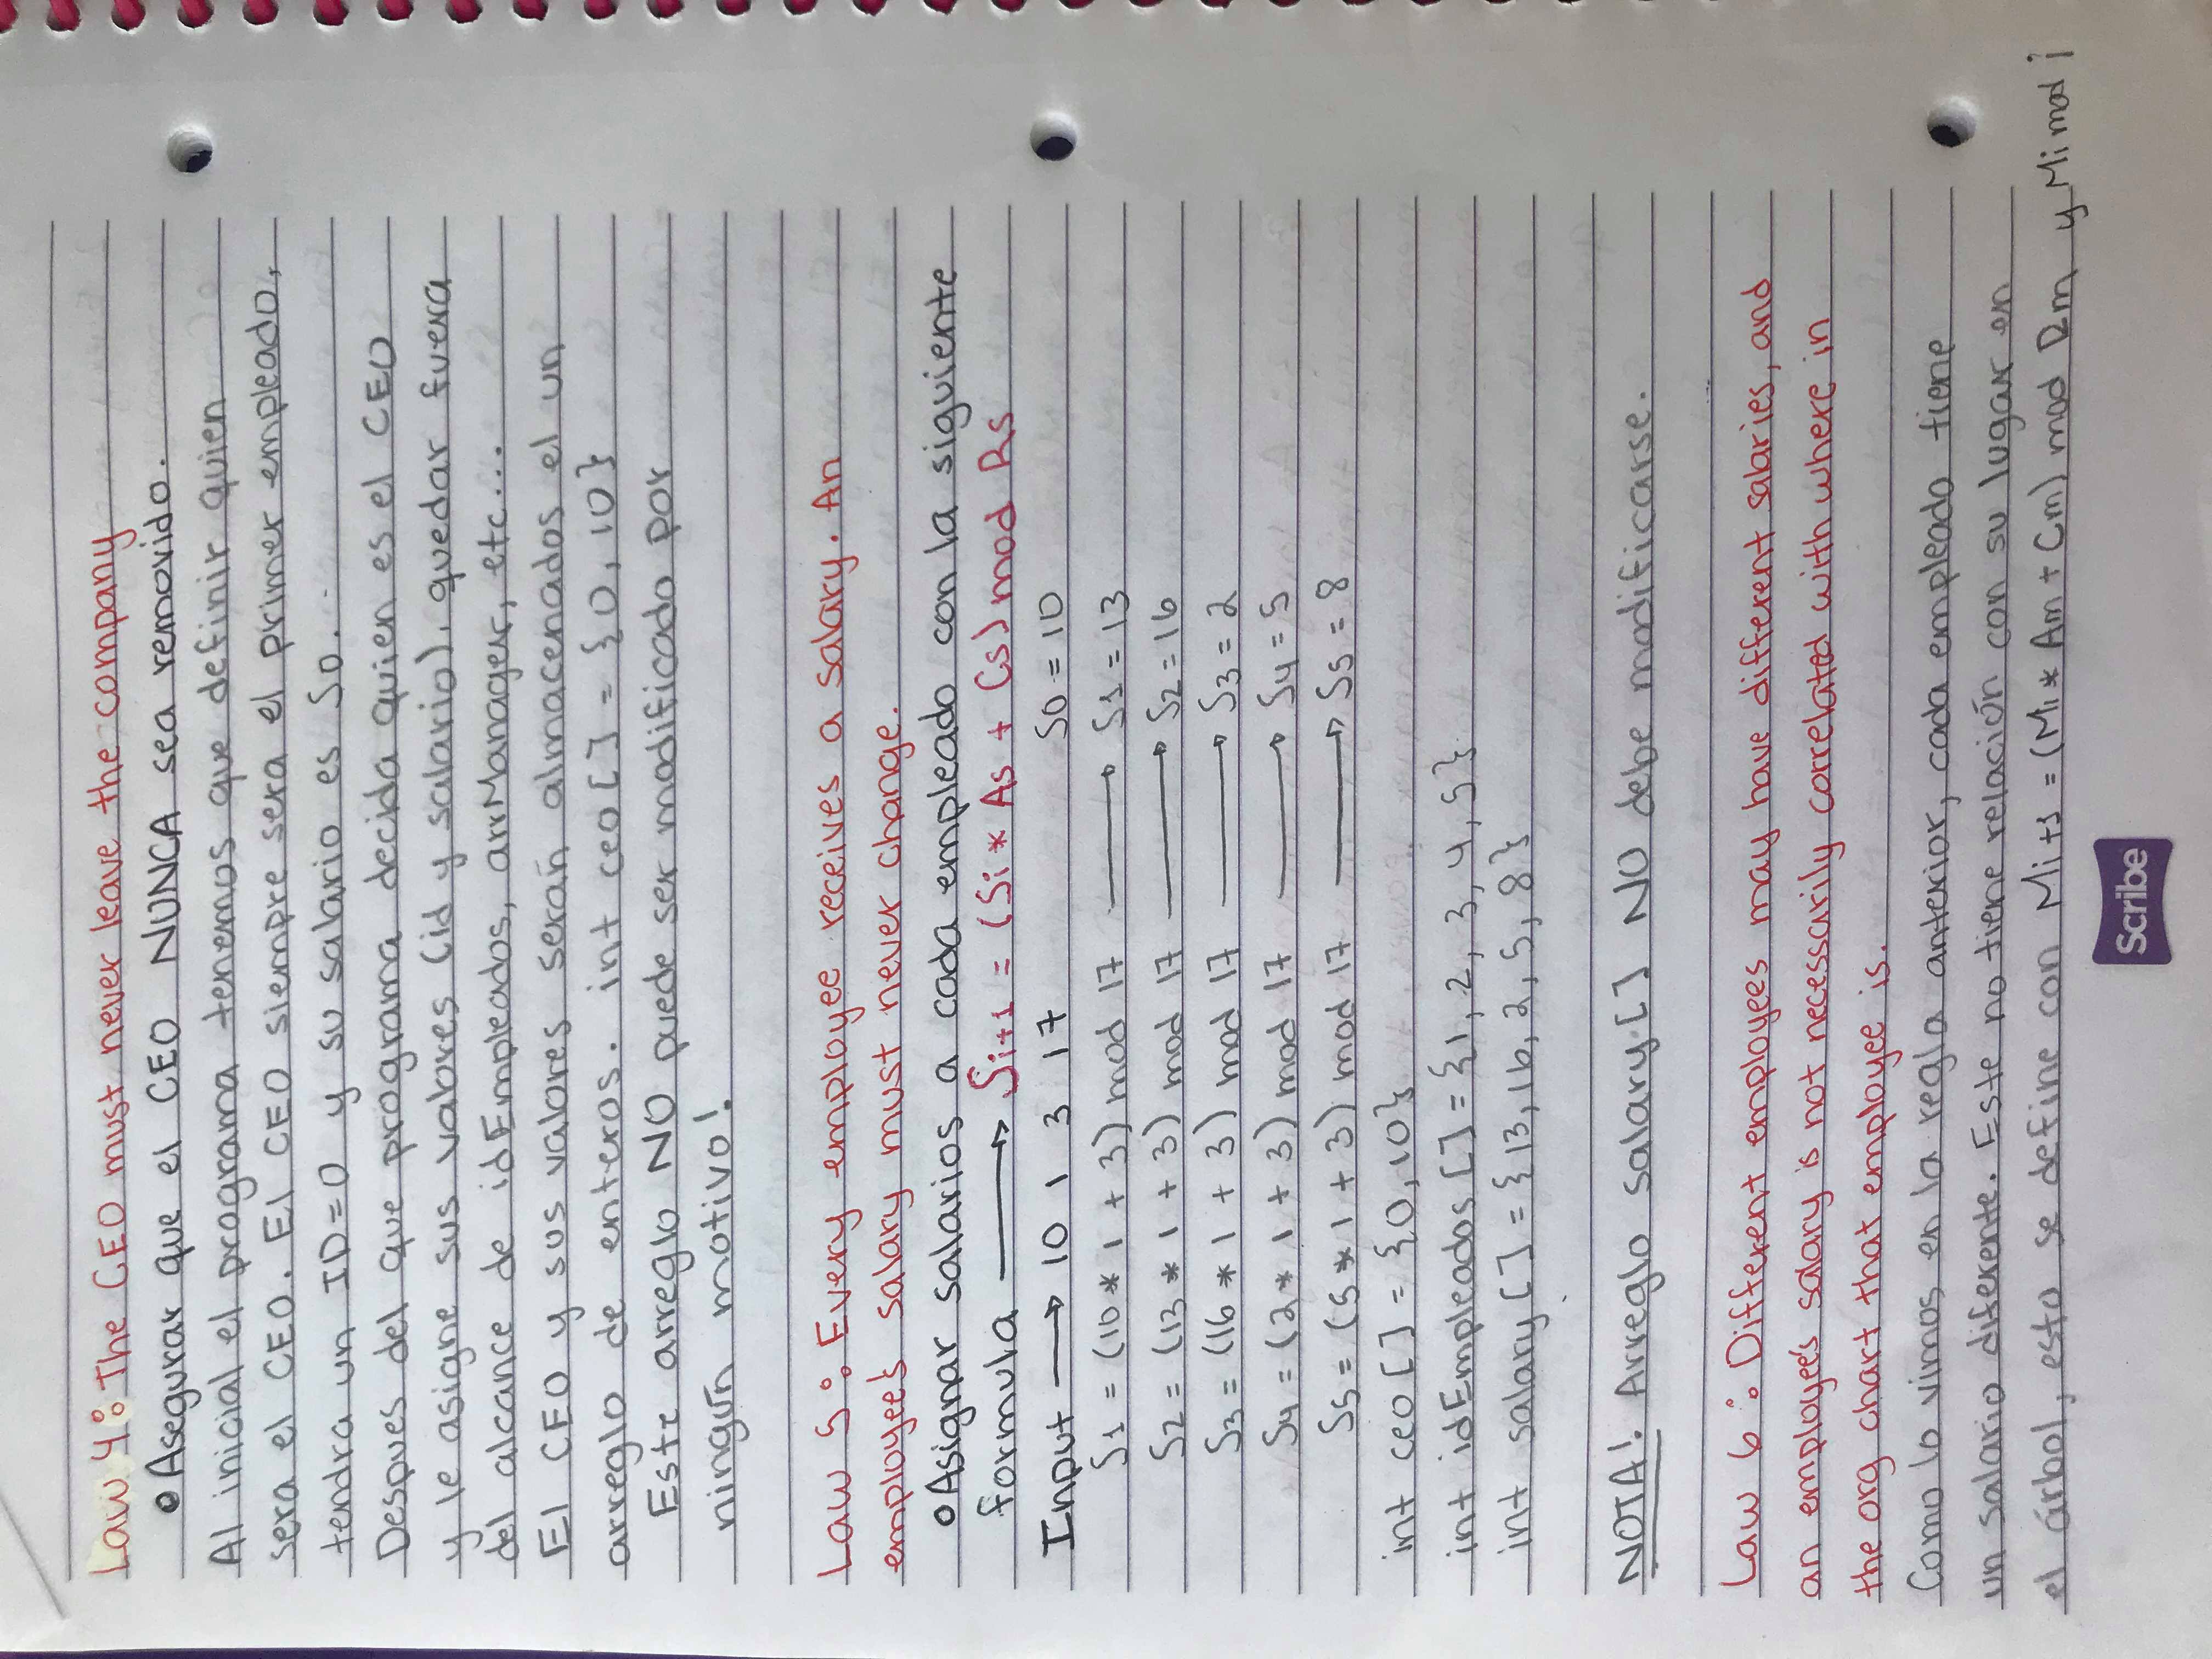 Law 4: The CEO must never leave the company
• Asegurar que el CEO NUNCA sea removido.
Al inicial el programa tenemos que definir quien
sera el CEO. El CEO siempre sera el primer empleado,
tendra un ID=0 y su salario es S0.
Despues del que programa decida quien es el CEO
y le asigne sus valores (id y salario), quedar fuera
del alcance de idEmpleados, arrManager, etc...
El CEO y sus valores serán almacenados el un
arreglo de enteros. int ceo[] = {0, 10}
Este arreglo NO puede ser modificado por
ningún motivo!
Law 5: Every employee receives a salary. An
employee's salary must never change.
• Asignar salarios a cada empleado con la siguiente
formula → Si+1 = (Si * As + Cs) mod Rs
Input → 10 1 3 17 S0 = 10
S1 = (10 * 1 + 3) mod 17 → S1 = 13
S2 = (13 * 1 + 3) mod 17 → S2 = 16
S3 = (16 * 1 + 3) mod 17 → S3 = 2
S4 = (2 * 1 + 3) mod 17 → S4 = 5
S5 = (5 * 1 + 3) mod 17 → S5 = 8
int ceo[] = {0, 10}
int idEmpleados[] = {1, 2, 3, 4, 5}
int salary[] = {13, 16, 2, 5, 8}
NOTA!: Arreglo salary[] NO debe modificarse.
Law 6: Different employees may have different salaries, and
an employee's salary is not necessarily correlated with where in
the org chart that employee is.
Como lo vimos en la regla anterior, cada empleado tiene
un salario diferente. Este no tiene relación con su lugar en
el árbol, esto se define con Mi+1 = (Mi * Am + Cm) mod Rm y Mi mod i
Scribe